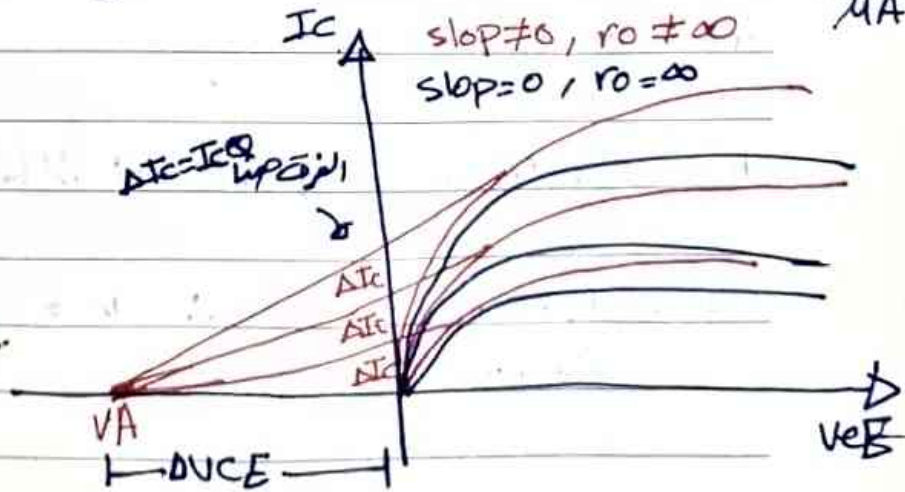 Ic
slop≠0, ro ≠ ∞
slop=0, ro=∞
MA
ΔIc=IcQ
الفرق هنا
ΔIc
ΔIc
ΔIc
VA
ΔVCE